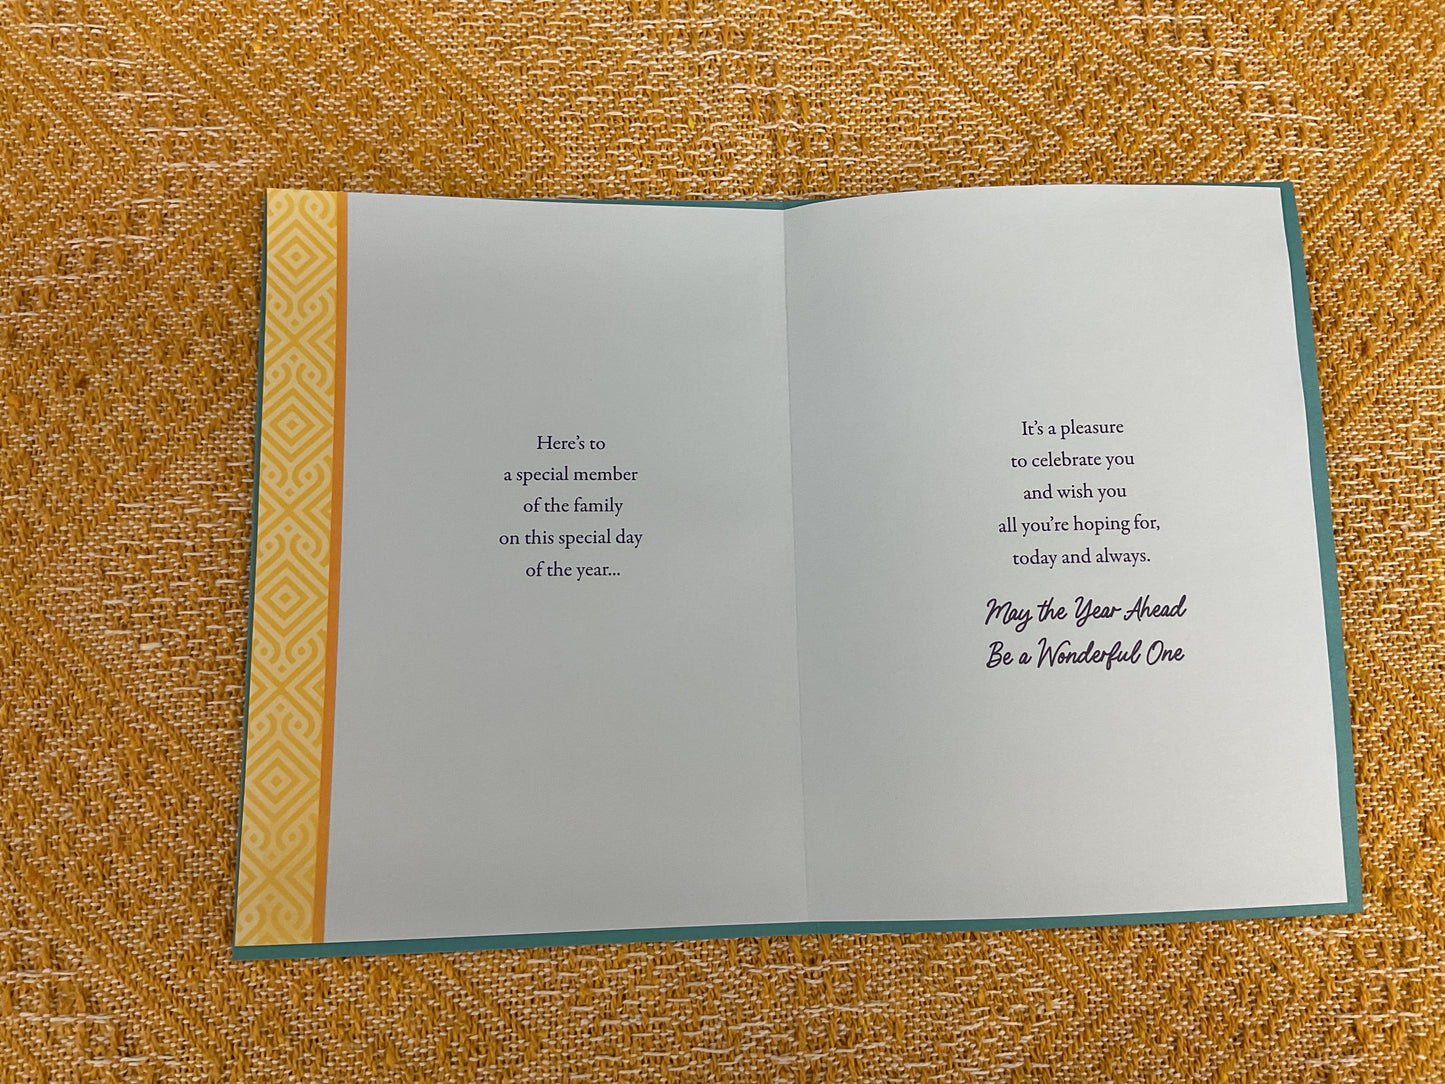 Here's to
a special member
of the family
on this special day
of the year...
It's a pleasure
to celebrate you
and wish you
all you're hoping for,
today and always.
May the Year Ahead
Be a Wonderful One